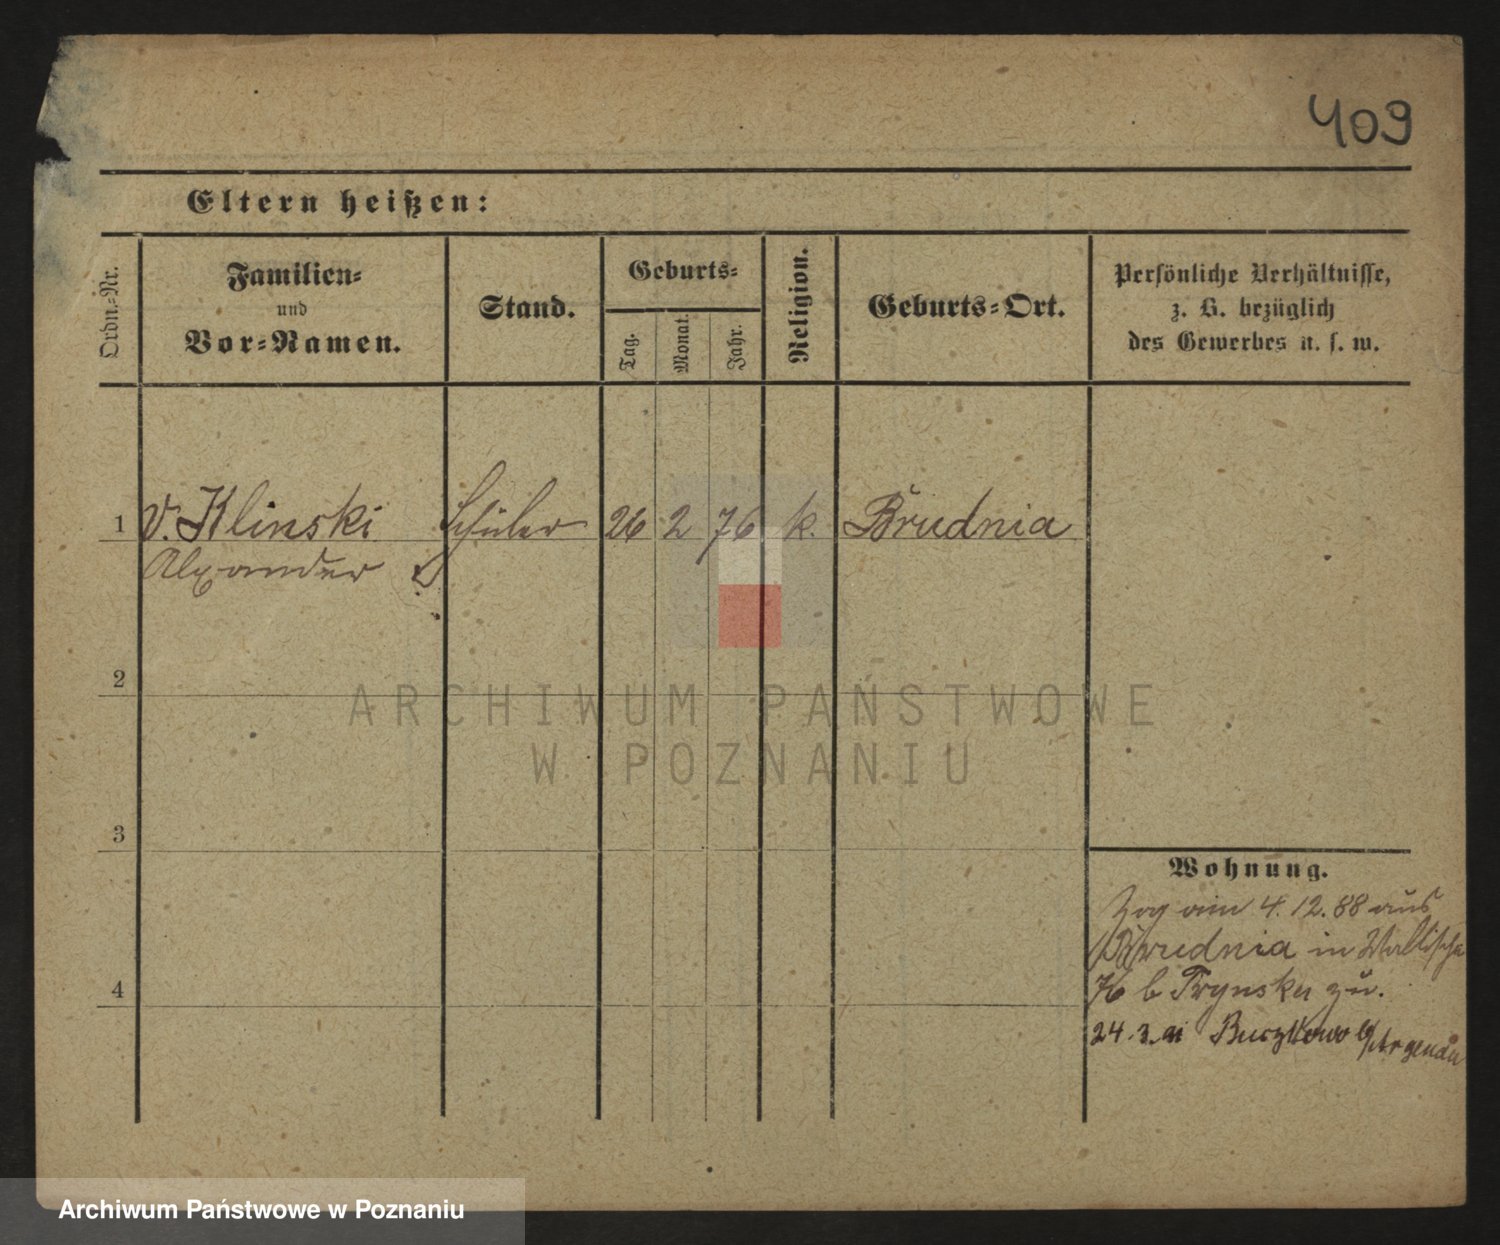 409
Eltern heißen:
Ordn.-Nr.
Familien-
und
Vor-Namen.
Stand.
Geburts-
Tag.
Monat.
Jahr.
Religion.
Geburts-Ort.
Persönliche Verhältnisse,
z. B. bezüglich
des Gewerbes u. s. w.
1 v. Klinski Schüler 26 2 76 k. Brudnia
Alexander
2
3
4
Wohnung.
Zog am 4.12.88 aus
Brudnia in Wallischei
76 b Trynska zu.
24.3.91 Buczkowo b/Argenau
ARCHIWUM PAŃSTWOWE
W POZNANIU
Archiwum Państwowe w Poznaniu